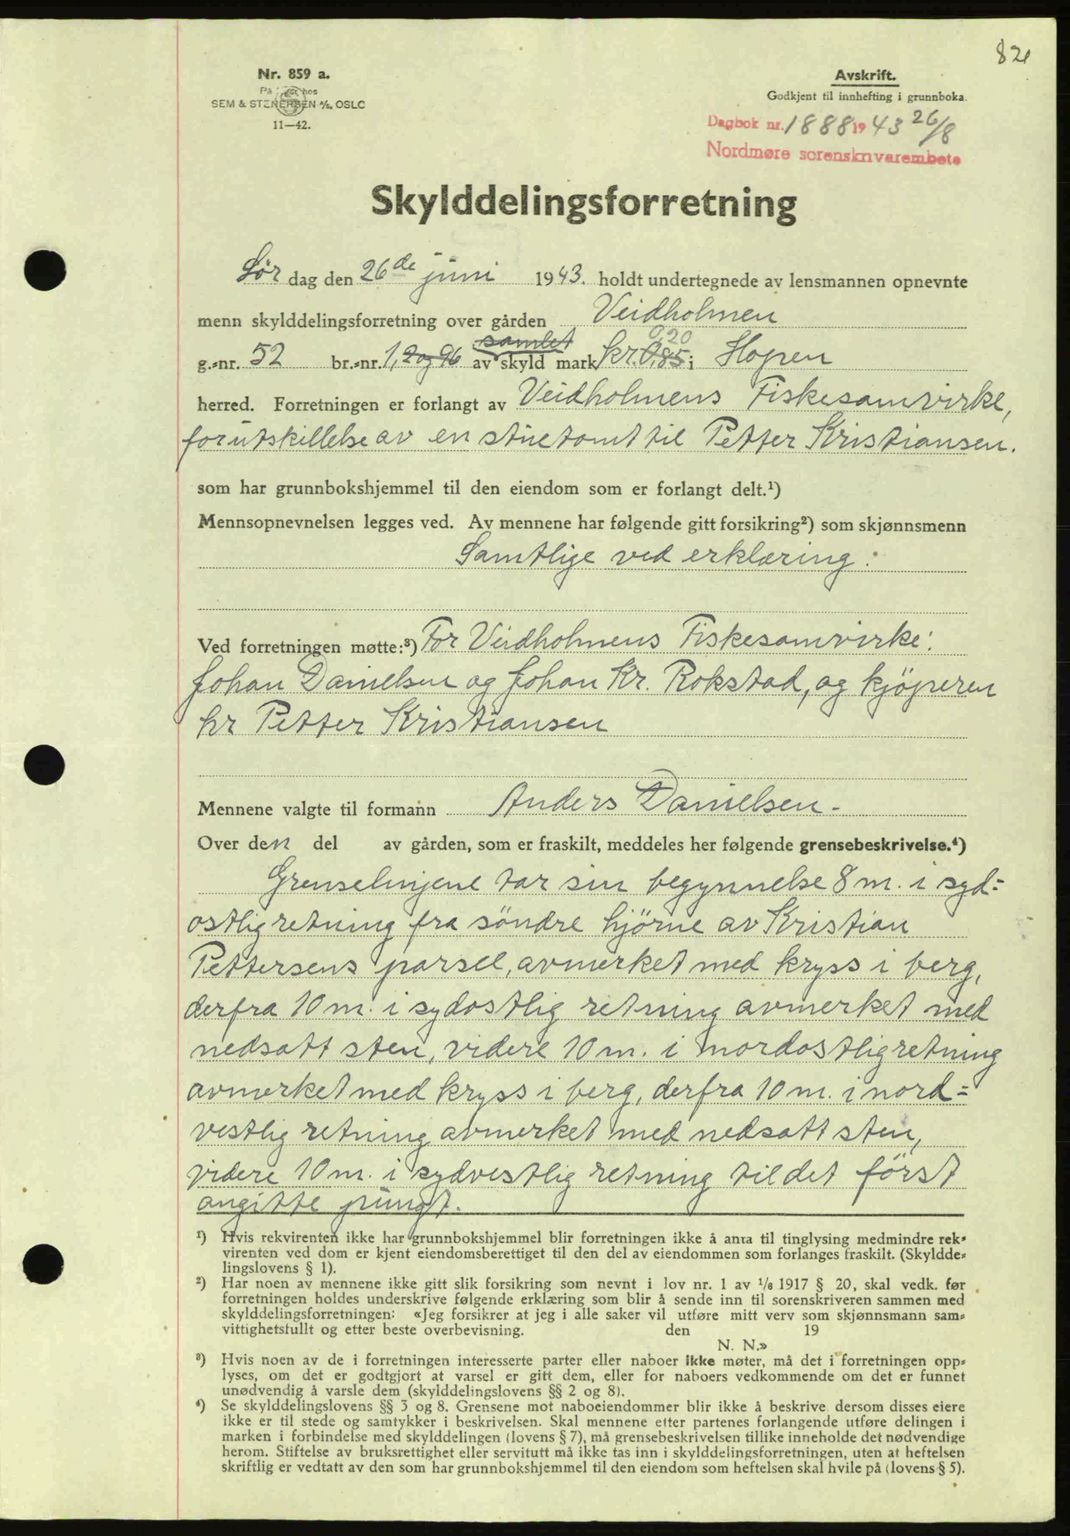 82
Nr. 859 a.
SEM & STENERSEN A/S, OSLO
11—42.
Avskrift.
Godkjent til innhefting i grunnboka.
Dagbok nr. 1888 1943 26/8
Nordmøre sorenskrivarembete
Skylddelingsforretning
Lør dag den 26de juni 1943. holdt undertegnede av lensmannen opnevnte
menn skylddelingsforretning over gården Veidholmen
samlet 0,20
g.-nr. 52 br.-nr. 1, 2 og 96 av skyld mark kr. 0,85 i Hopen
herred. Forretningen er forlangt av Veidholmens Fiskesamvirke,
for utskillelse av en stuetomt til Petter Kristiansen.
som har grunnbokshjemmel til den eiendom som er forlangt delt.¹)
Mennsopnevnelsen legges ved. Av mennene har følgende gitt forsikring²) som skjønnsmenn
Samtlige ved erklæring.
Ved forretningen møtte:³) For Veidholmens Fiskesamvirke:
Johan Danielsen og Johan Kr. Rokstad, og kjöperen
hr Petter Kristiansen
Mennene valgte til formann Anders Danielsen.
Over den del av gården, som er fraskilt, meddeles her følgende grensebeskrivelse.⁴)
Grenselinjene tar sin begynnelse 8 m. i syd=
ostlig retning fra söndre hjörne av Kristian
Pettersens parsel, avmerket med kryss i berg,
derfra 10 m. i sydostlig retning avmerket med
nedsatt sten, videre 10 m. i nordostlig retning
avmerket med kryss i berg, derfra 10 m. i nord=
vestlig retning avmerket med nedsatt sten,
videre 10 m. i sydvestlig retning til det först
angitte pungt.
¹) Hvis rekvirenten ikke har grunnbokshjemmel blir forretningen ikke å anta til tinglysing medmindre rek-
virenten ved dom er kjent eiendomsberettiget til den del av eiendommen som forlanges fraskilt. (Skyldde-
lingslovens § 1).
²) Har noen av mennene ikke gitt slik forsikring som nevnt i lov nr. 1 av 1/6 1917 § 20, skal vedk. før
forretningen holdes underskrive følgende erklæring som blir å sende inn til sorenskriveren sammen med
skylddelingsforretningen: «Jeg forsikrer at jeg i alle saker vil utføre mitt verv som skjønnsmann sam-
vittighetsfullt og etter beste overbevisning. den 19
N. N.»
³) Hvis noen av de i forretningen interesserte parter eller naboer ikke møter, må det i forretningen opp-
lyses, om det er godtgjort at varsel er gitt dem, eller for naboers vedkommende om det er funnet
unødvendig å varsle dem (skylddelingslovens §§ 2 og 8).
⁴) Se skylddelingslovens §§ 3 og 8. Grensene mot naboeiendommer blir ikke å beskrive dersom disses eiere
ikke er til stede og samtykker i beskrivelsen. Skal mennene etter partenes forlangende utføre delingen i
marken i forbindelse med skylddelingen (lovens § 7), må grensebeskrivelsen tillike inneholde det nødvendige
herom. Stiftelse av bruksrettighet eller servitutt må ikke tas inn i skylddelingsforretningen, uten at heftelsen
skriftlig er vedtatt av den som har grunnbokshjemmel til den eiendom som heftelsen skal hvile på (lovens § 5).